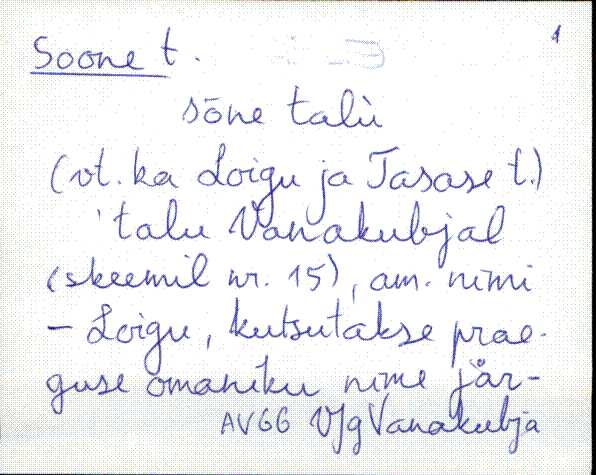 1
Soone t.
sōne talù
(vt. ka Loigu ja Tasase t.)
'talu Vanakubjal
(skeemil nr. 15), am. nimi
– Loigu, kutsutakse prae-
guse omaniku nime jär-
AV66 VJg Vanakubja